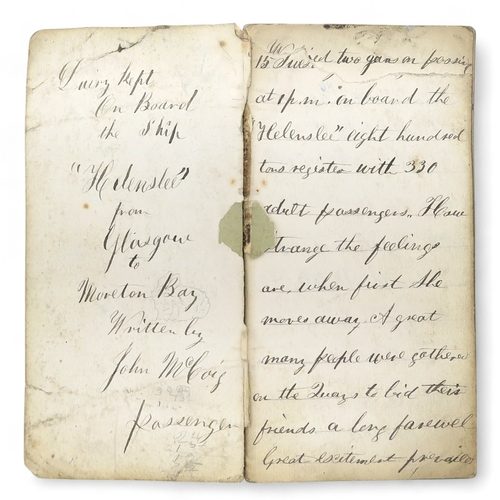 Dairy Kept
On Board
the Ship
"Helenslee"
from
Glasgow
to
Moreton Bay
Written by
John McCoig
passenger
15 Tues. two guns on passing
at 1 p.m. in board the
"Helenslee" eight hundred
tons register with 330
adult passengers. How
strange the feelings
are, when first she
moves away A great
many people were gathered
on the Quays to bid their
friends a long farewel
Great excitement prevailed